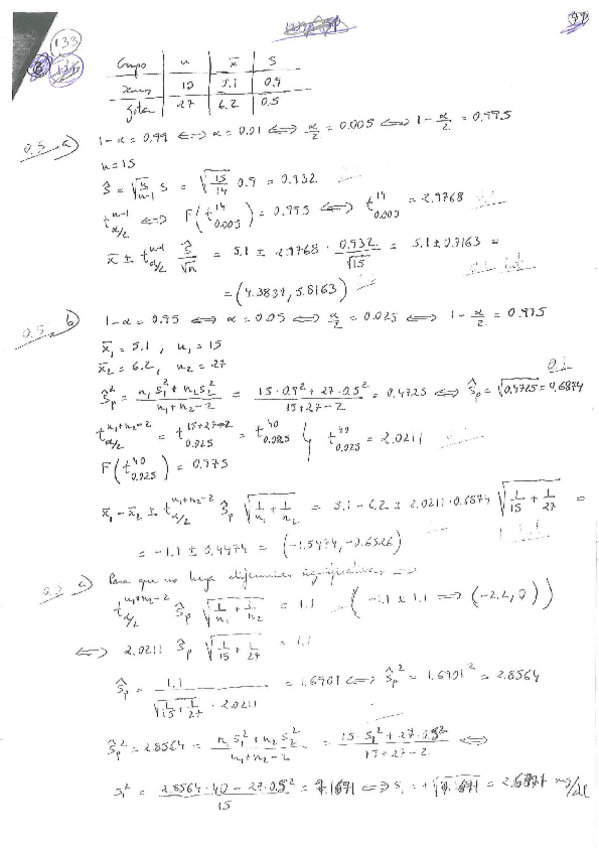 133
99
Grupo n x̄ S
15 5.1 0.9
Gota 27 6.2 0.5
0.5 a) 1-α = 0.99 ⟺ α = 0.01 ⟺ α/2 = 0.005 ⟺ 1 - α/2 = 0.995
n = 15
Ŝ = √(n/(n-1)) S = √(15/14) 0.9 = 0.932
t^{n-1}_{α/2} ⟺ F(t^{14}_{0.005}) = 0.995 ⟺ t^{14}_{0.005} = 2.9768
x̄ ± t^{n-1}_{α/2} Ŝ/√n = 5.1 ± 2.9768 · 0.932/√15 = 5.1 ± 0.7163 =
= (4.3837, 5.8163)
0.5 b) 1-α = 0.95 ⟺ α = 0.05 ⟺ α/2 = 0.025 ⟺ 1 - α/2 = 0.975
x̄₁ = 5.1, n₁ = 15
x̄₂ = 6.2, n₂ = 27
Ŝp² = (n₁S₁² + n₂S₂²)/(n₁+n₂-2) = (15·0.9² + 27·0.5²)/(15+27-2) = 0.4725 ⟺ Ŝp = √0.4725 = 0.6874
t^{n₁+n₂-2}_{α/2} = t^{15+27-2}_{0.025} = t^{40}_{0.025} t^{40}_{0.025} = 2.0211
F(t^{40}_{0.025}) = 0.975
x̄₁ - x̄₂ ± t^{n₁+n₂-2}_{α/2} Ŝp √(1/n₁ + 1/n₂) = 5.1 - 6.2 ± 2.0211 · 0.6874 √(1/15 + 1/27) =
= -1.1 ± 0.4474 = (-1.5474, -0.6526)
c) Para que no haya diferencias significativas
t^{n₁+n₂-2}_{α/2} Ŝp √(1/n₁ + 1/n₂) = 1.1 (-1.1 ± 1.1 ⟹ (-2.2, 0))
⟺ 2.0211 Ŝp √(1/15 + 1/27) = 1.1
Ŝp = 1.1/(√(1/15 + 1/27) · 2.0211) = 1.6901 ⟺ Ŝp² = 1.6901² = 2.8564
Ŝp² = 2.8564 = (n₁S₁² + n₂S₂²)/(n₁+n₂-2) = (15·S₁² + 27·0.5²)/(15+27-2) ⟺
S₁² = (2.8564·40 - 27·0.5²)/15 = 7.1671 ⟺ S₁ = +√7.1671 = mg/dl